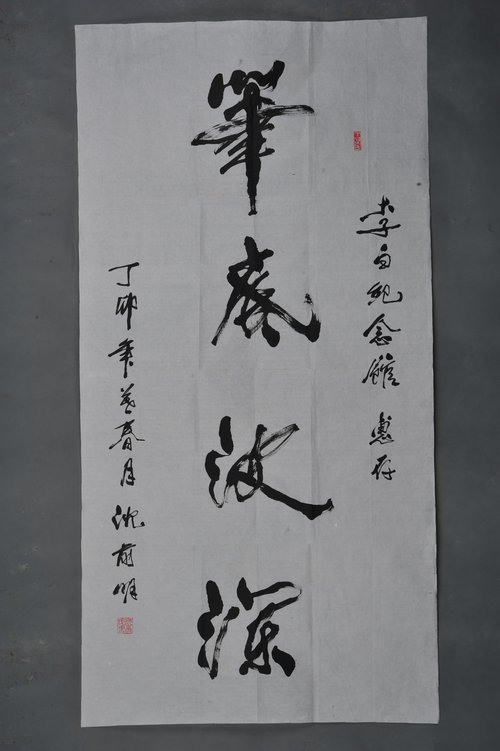 李白紀念館 惠存
筆底波瀾
丁卯年暮春月 沈前明